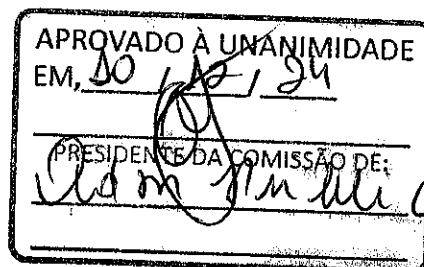 APROVADO À UNANIMIDADE
EM, 10 / 12 / 24
PRESIDENTE DA COMISSÃO DE: